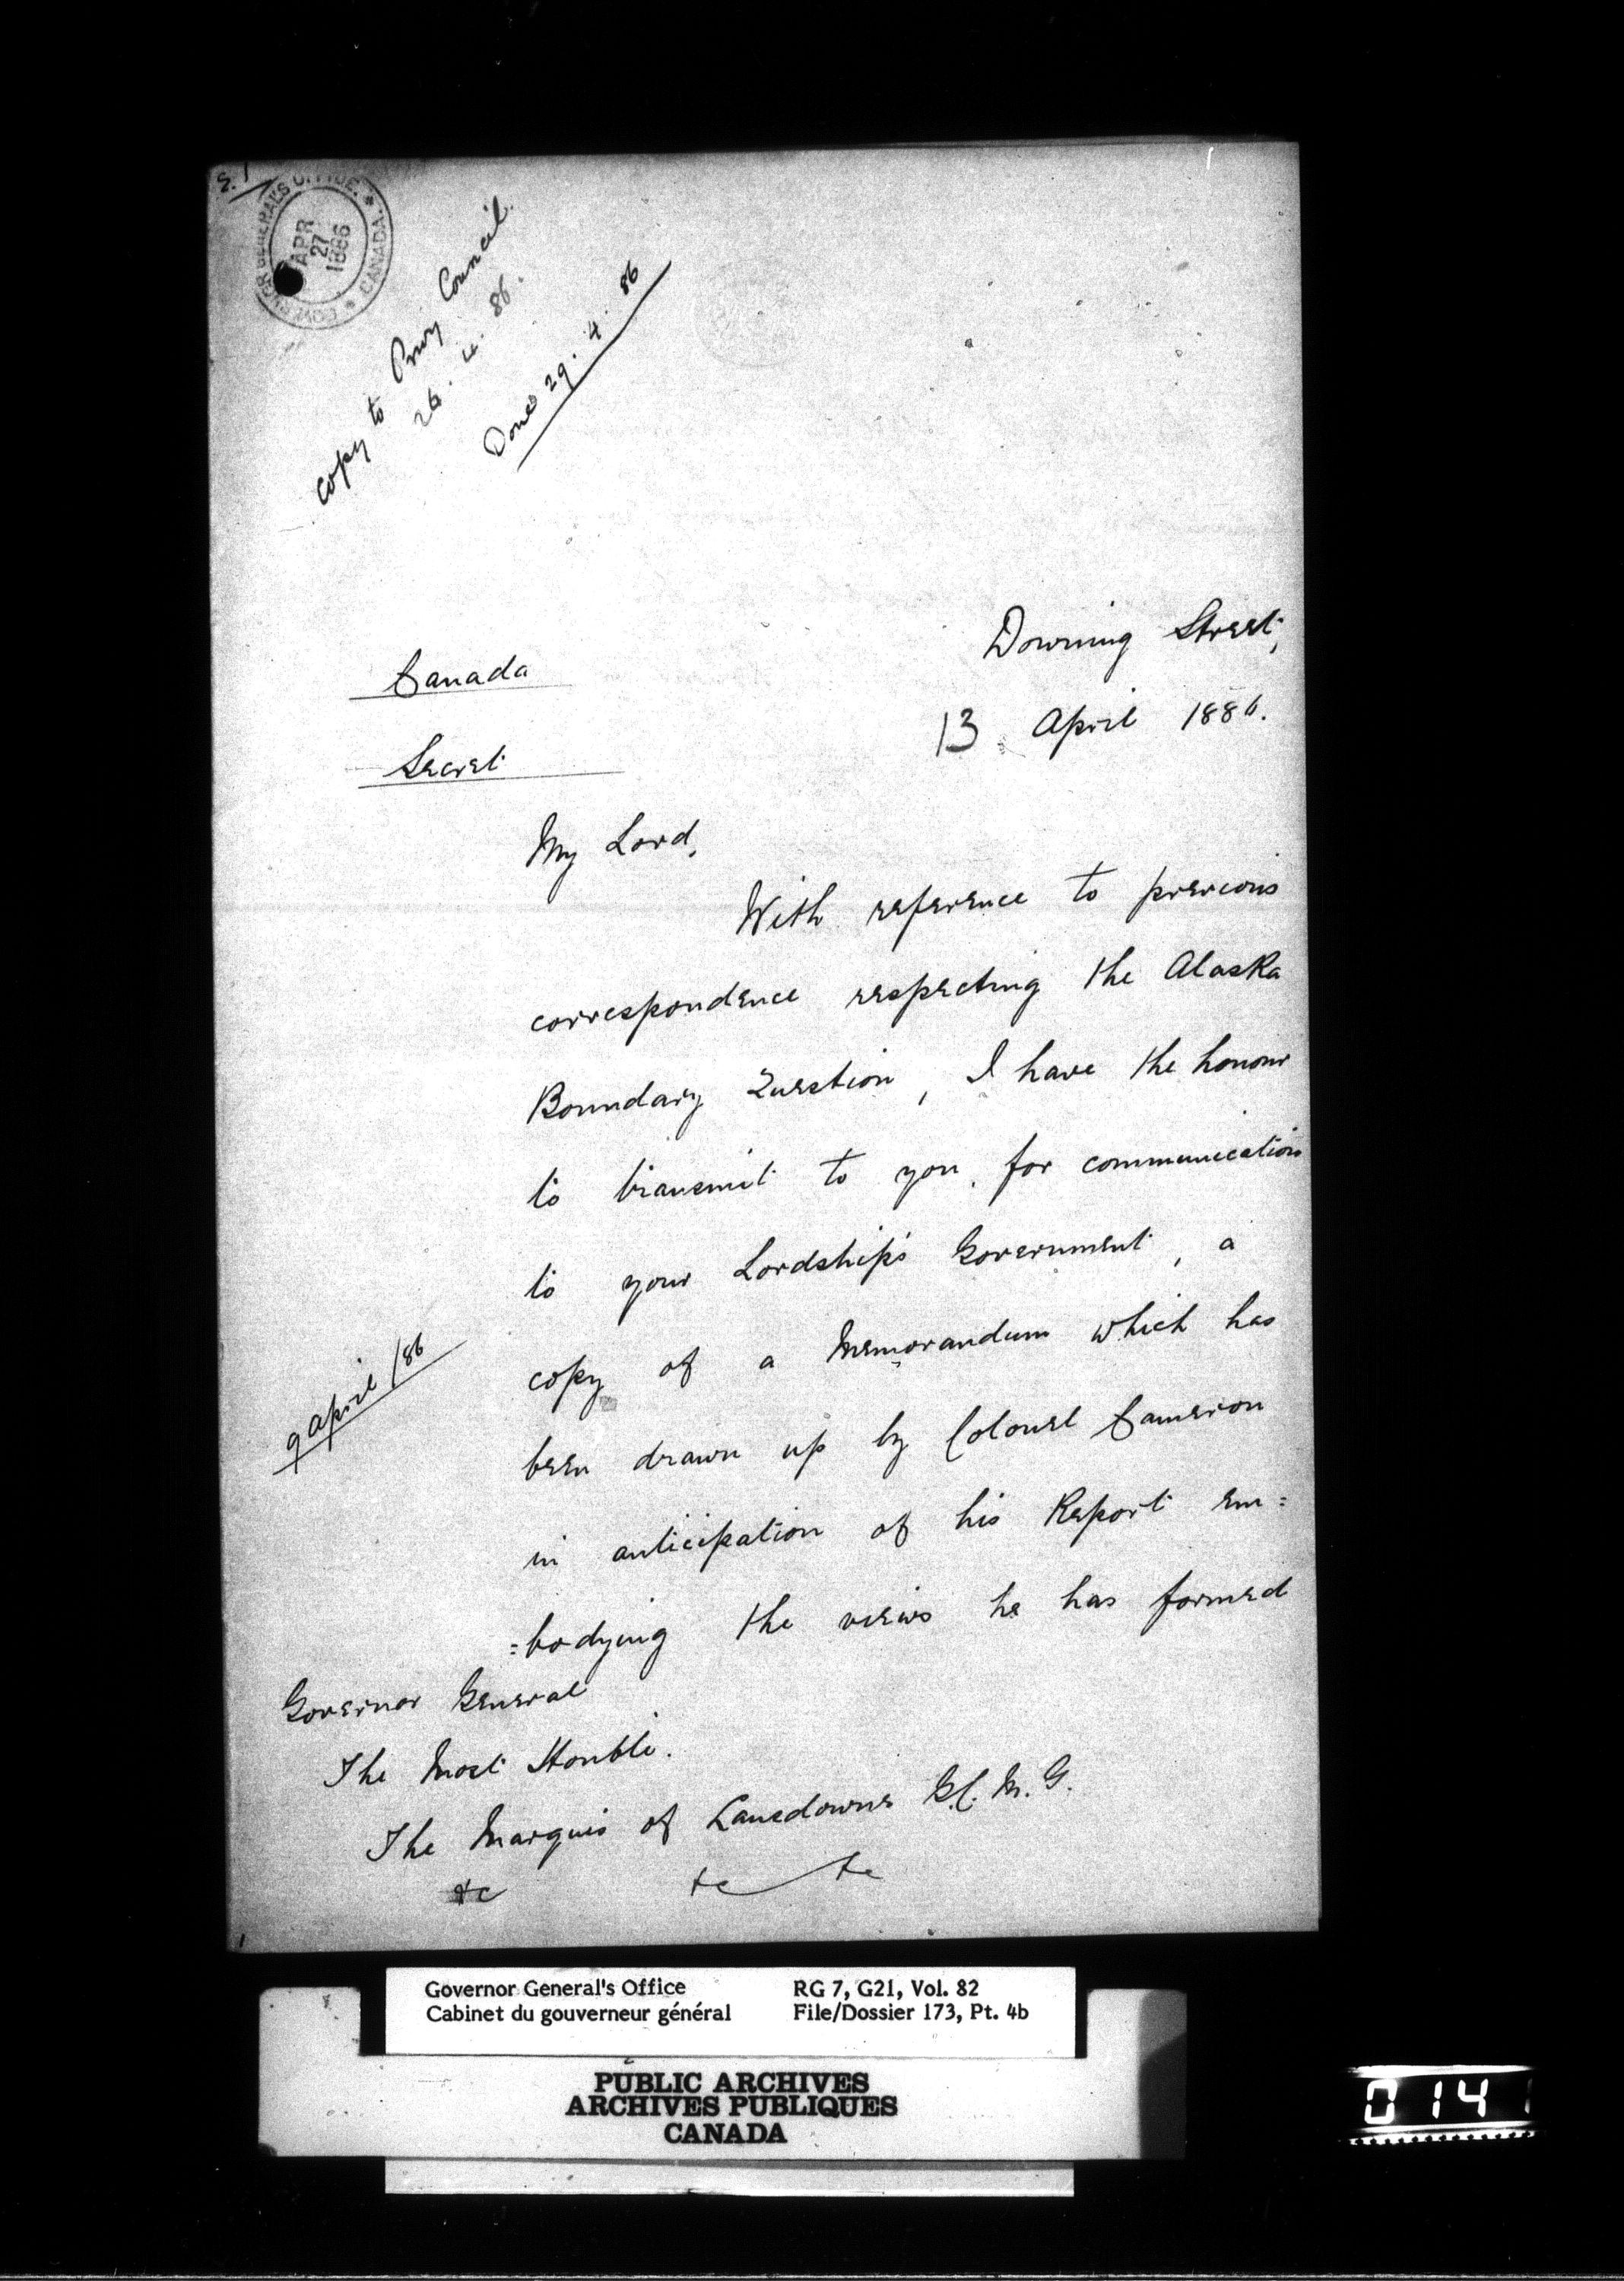 S. 1
GOVERNOR GENERAL'S OFFICE. * CANADA. *
APR
27
1886
Copy to Privy Council.
26. 4. 86.
Done 29. 4. 86
Downing Street,
Canada
13 April 1886.
Secret
My Lord,
With reference to previous
correspondence respecting the Alaska
Boundary Question, I have the honour
to transmit to you, for communication
to your Lordship's Government, a
copy of a Memorandum which has
9 April /86
been drawn up by Colonel Cameron
in anticipation of his Report em=
=bodying the views he has formed
Governor General
The Most Honble.
The Marquis of Lansdowne G.C.M.G.
&c &c &c
Governor General's Office
Cabinet du gouverneur général
RG 7, G21, Vol. 82
File/Dossier 173, Pt. 4b
PUBLIC ARCHIVES
ARCHIVES PUBLIQUES
CANADA
0141